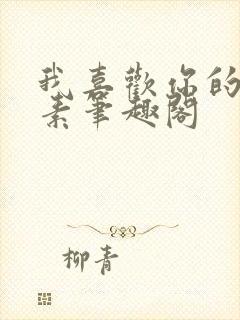 我喜歡你的
素筆趣閣
柳青